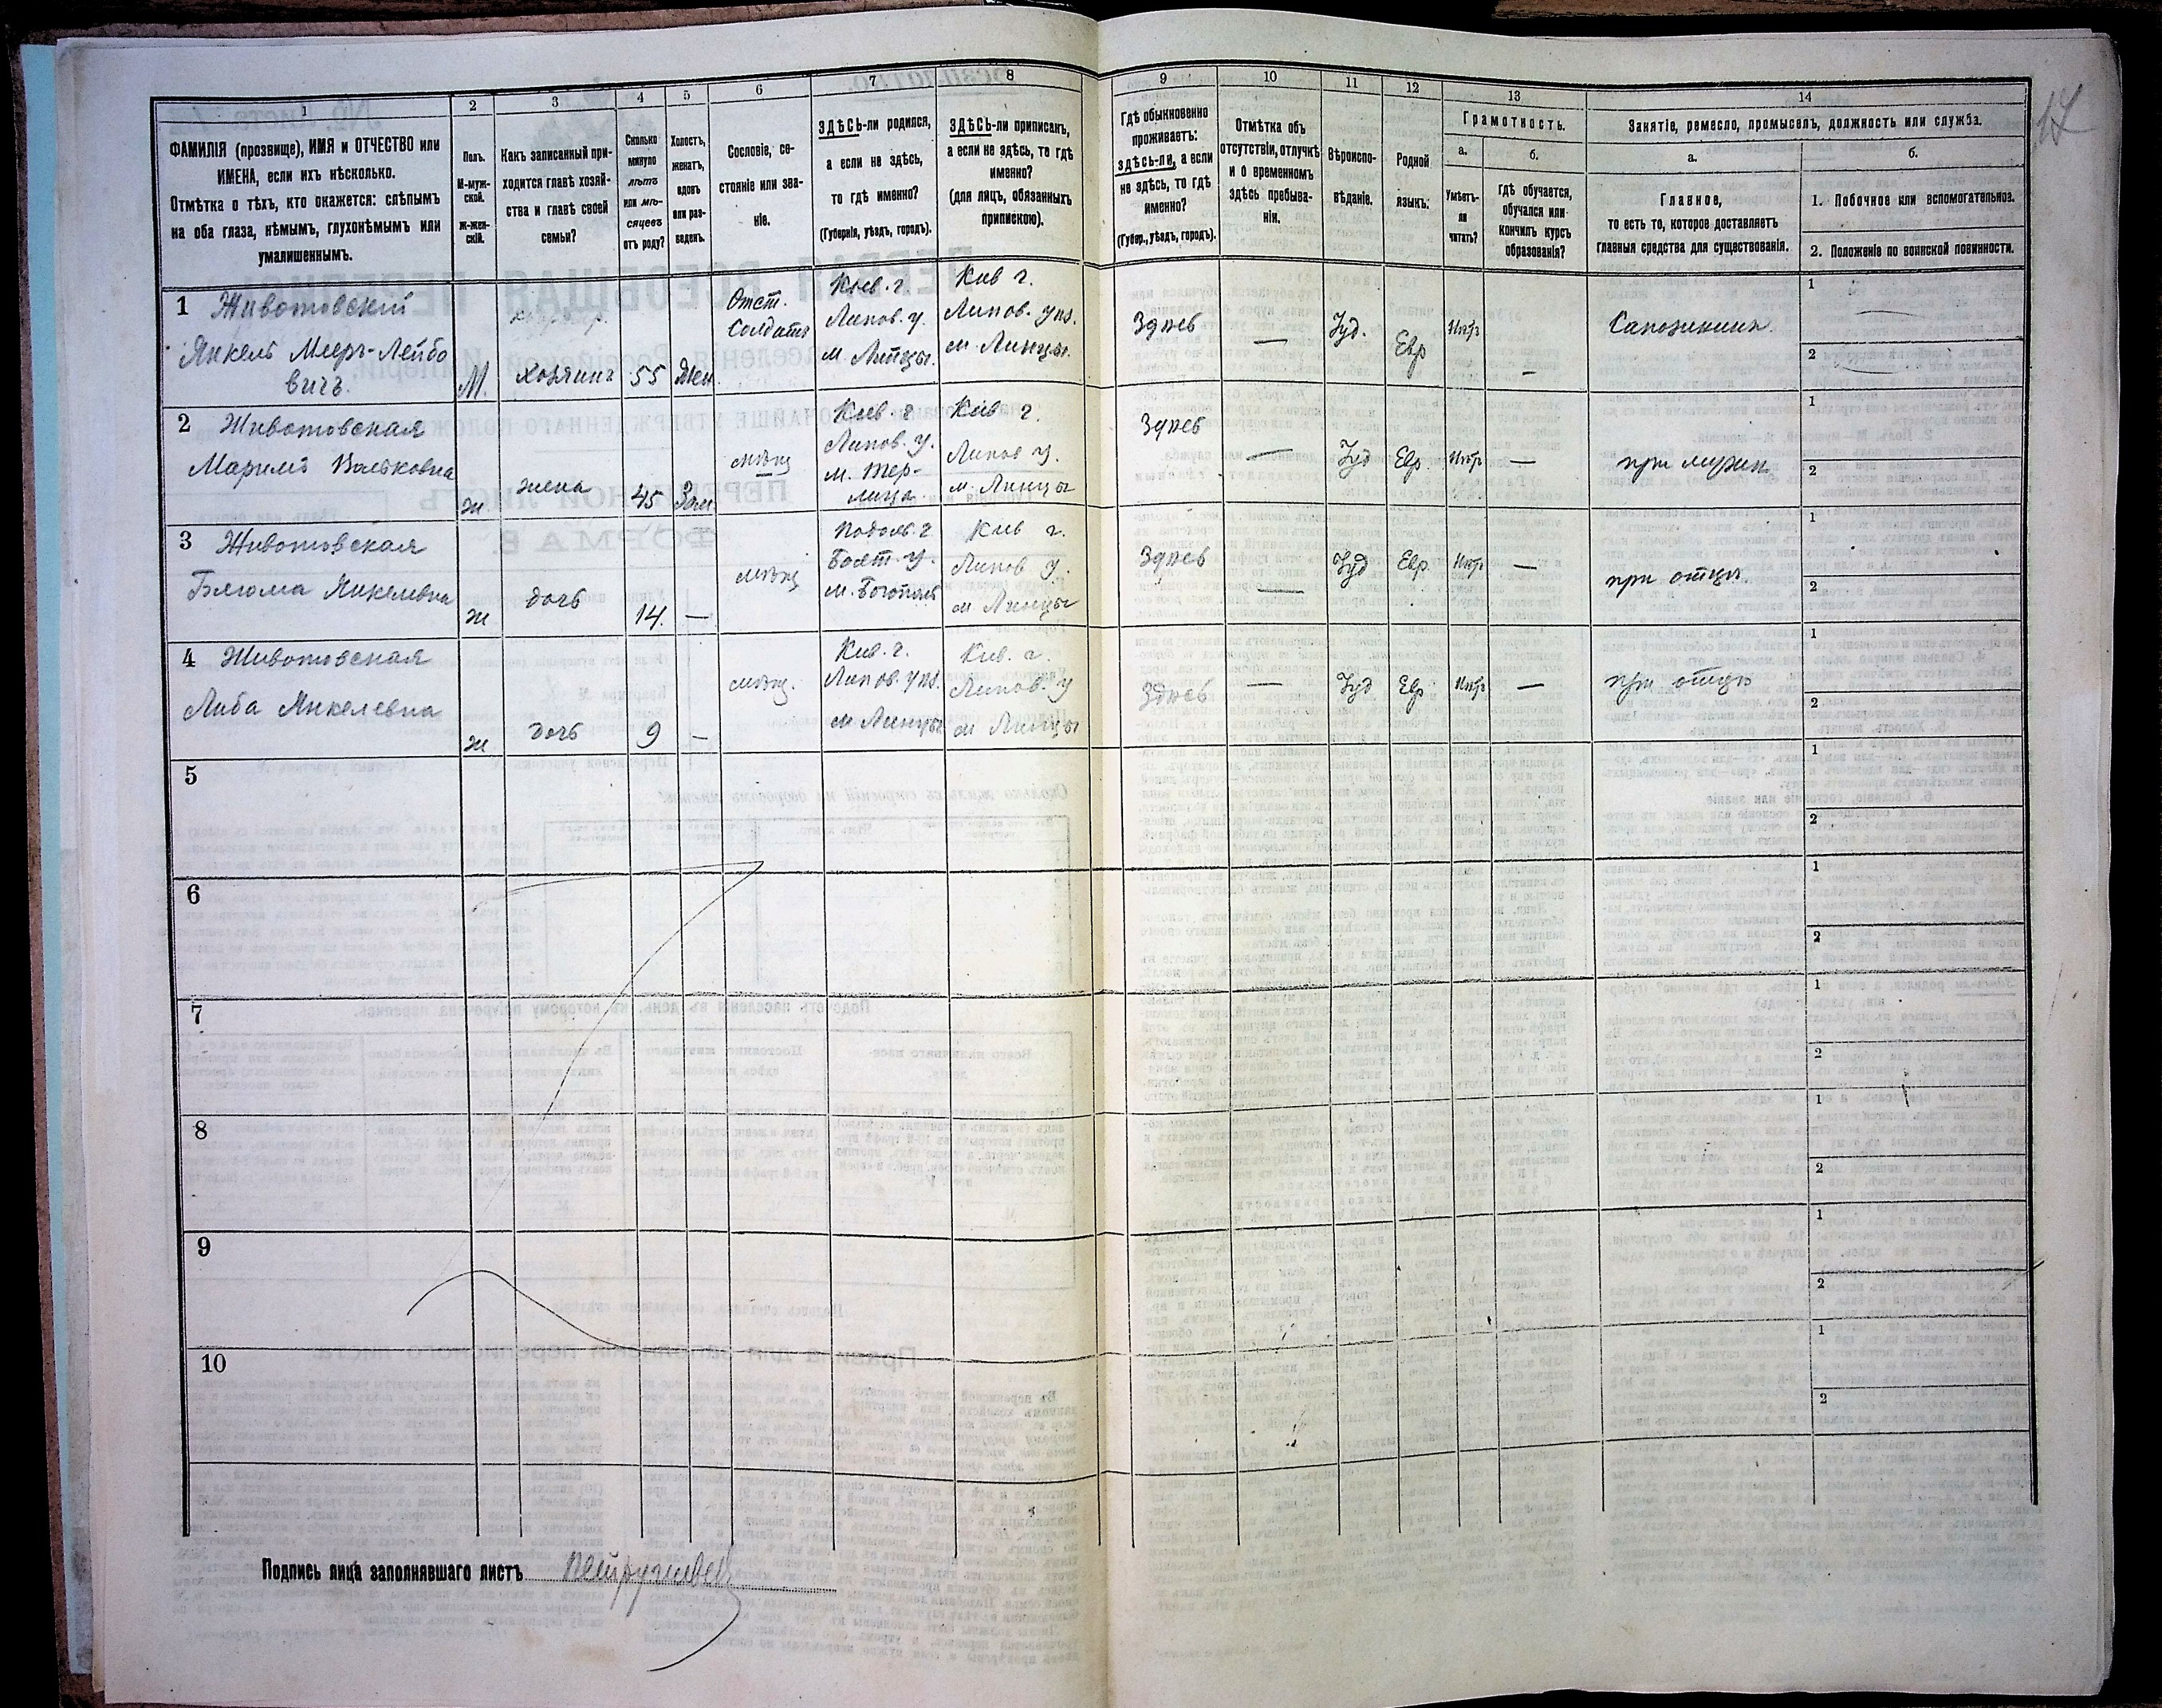 1
2
3
4
5
6
7
8
9
10
11
12
13
14
17
ФАМИЛІЯ (прозвище), ИМЯ и ОТЧЕСТВО или
ИМЕНА, если ихъ нѣсколько.
Отмѣтка о тѣхъ, кто окажется: слѣпымъ
на оба глаза, нѣмымъ, глухонѣмымъ или
умалишеннымъ.
Полъ.
М-муж-
ской.
Ж-жен-
скій.
Какъ записанный при-
ходится главѣ хозяй-
ства и главѣ своей
семьи?
Сколько
минуло
лѣтъ
или мѣ-
сяцевъ
отъ роду?
Холостъ,
женатъ,
вдовъ
или раз-
веденъ.
Сословіе, со-
стояніе или зва-
ніе.
ЗДѢСЬ-ли родился,
а если не здѣсь,
то гдѣ именно?
(Губернія, уѣздъ, городъ).
ЗДѢСЬ-ли приписанъ,
а если не здѣсь, то гдѣ
именно?
(для лицъ, обязанныхъ
припискою).
Гдѣ обыкновенно
проживаетъ:
здѣсь-ли, а если
не здѣсь, то гдѣ
именно?
(Губер., уѣздъ, городъ).
Отмѣтка объ
отсутствіи, отлучкѣ
и о временномъ
здѣсь пребыва-
ніи.
Вѣроиспо-
вѣданіе.
Родной
языкъ.
Грамотность.
а.
Умѣетъ-
ли
читать?
б.
гдѣ обучается,
обучался или
кончилъ курсъ
образованія?
Занятіе, ремесло, промыселъ, должность или служба.
а.
Главное,
то есть то, которое доставляетъ
главныя средства для существованія.
б.
1. Побочное или вспомогательное.
2. Положеніе по воинской повинности.
1 Животовскій
Янкель Мееръ-Лейбо
вичъ.
М.
хозяинъ
55
жен.
Отст.
Солдатъ
Кіев. г.
Липов. у.
м. Линцы.
Кив г.
Липов. уѣз.
м. Линцы.
Здѣсь
—
Іуд.
Евр
Нѣтъ
-
Сапожникъ.
1
2
2 Животовская
Маримъ Вольковна
ж
жена
45
Зам
мѣщ
Кив. г
Липов. у.
м. Тер-
лица
Кив г.
Липов у.
м. Линцы
Здѣсь
—
Іуд
Евр.
Нѣтъ
—
при мужѣ
1
2
3 Животовская
Блюма Янкелевна
ж
дочь
14.
—
мѣщ
Подоль. г
Балт. у.
м. Богополь
Кив г.
Липов у.
м Линцы
Здѣсь
—
Іуд
Евр.
Нѣтъ
—
при отцѣ
1
2
4 Животовская
Либа Янкелевна
ж
дочь
9
—
мѣщ.
Кив. г.
Липов. уѣз.
м Линцы
Кив. г.
Липов. у
м Линцы
Здѣсь
—
Іуд
Евр
Нѣтъ
—
при отцѣ
1
2
5
1
2
6
1
2
7
1
2
8
1
2
9
1
2
10
1
2
Подпись лица заполнявшаго листъ